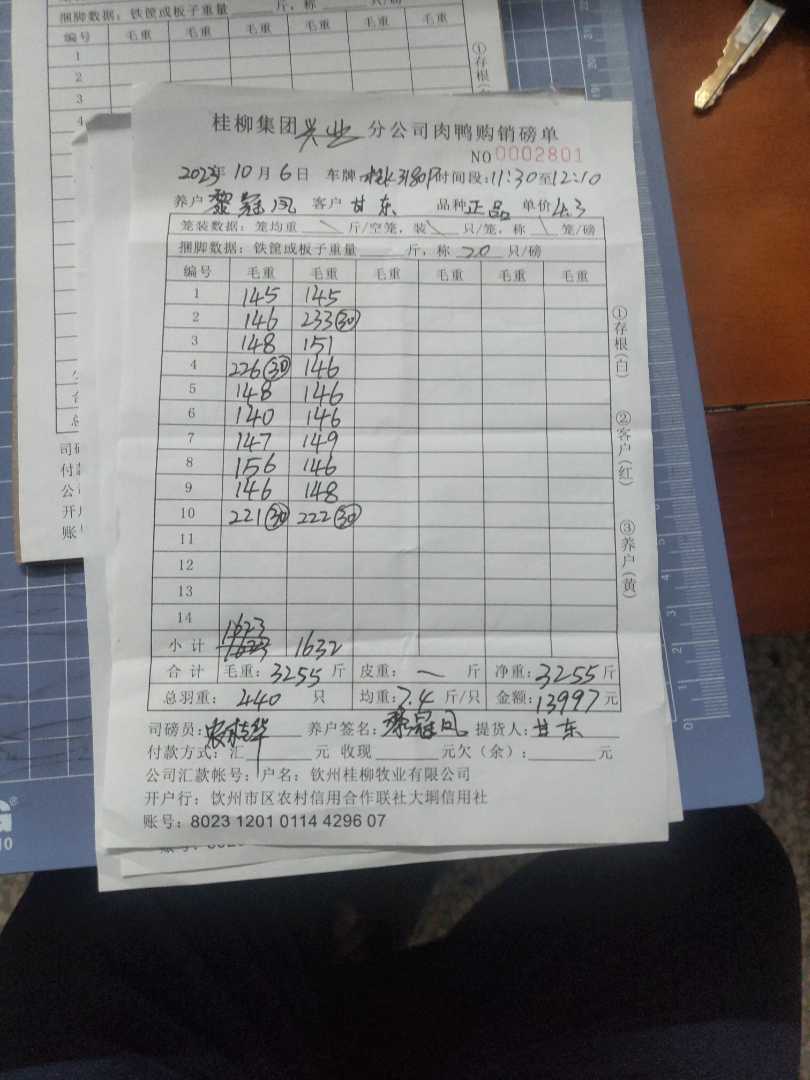 捆脚数据：铁筐或板子重量 斤，称 只/磅
编号 毛重 毛重 毛重 毛重 毛重 毛重
1
2
3
4
①存根
桂柳集团兴业分公司肉鸭购销磅单
NO 0002801
2023年10月6日 车牌 3180 时间段：11:30至12:10
养户 黎冠凤 客户 甘东 品种 正品 单价 4.3
笼装数据：笼均重 \ 斤/空笼，装 \ 只/笼，称 \ 笼/磅
捆脚数据：铁筐或板子重量 斤，称 20 只/磅
编号 毛重 毛重 毛重 毛重 毛重 毛重
1 145 145
2 146 233㉚
3 148 151
4 226㉚ 146
5 148 146
6 140 146
7 147 149
8 156 146
9 146 148
10 221㉚ 222㉚
11
12
13
14
小计 1623 1632
合计 毛重：3255斤 皮重：— 斤 净重：3255斤
总羽重：440 只 均重：7.4斤/只 金额：13997元
司磅员： 养户签名：黎冠凤 提货人：甘东
付款方式：汇 元 收现 元欠（余）： 元
公司汇款帐号：户名：钦州桂柳牧业有限公司
开户行：钦州市区农村信用合作联社大垌信用社
账号：8023 1201 0114 4296 07
①存根(白)
②客户(红)
③养户(黄)
司磅
付款
公司
开户
账号